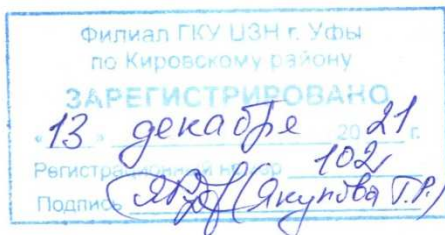 Филиал ГКУ ЦЗН г. Уфы
по Кировскому району
ЗАРЕГИСТРИРОВАНО
«13» декабря 2021 г.
Регистрационный номер 102
Подпись (Якупова Т.Р.)